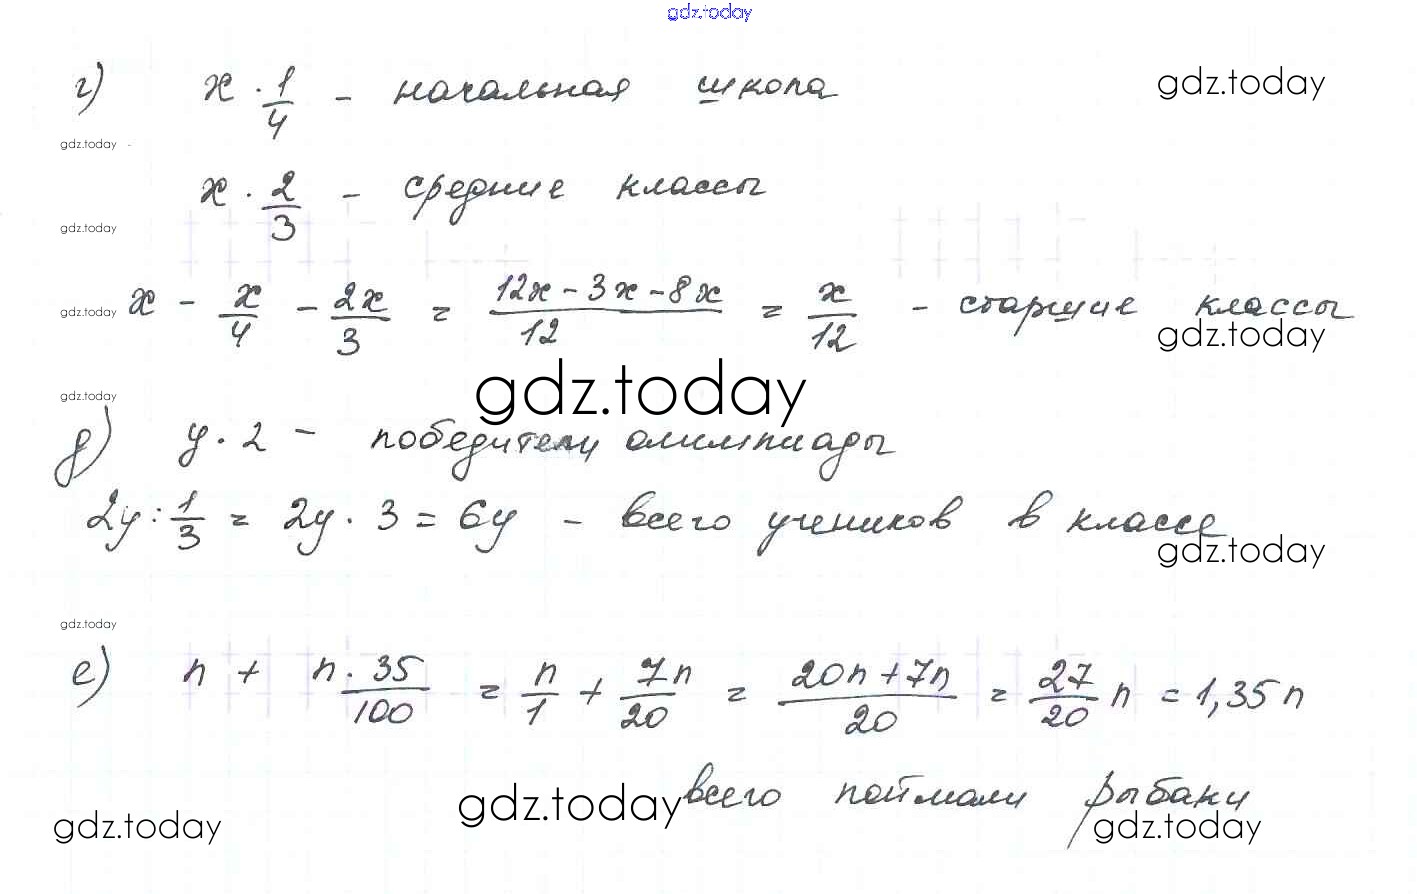 gdz.today
г) x · 1/4 - начальная школа gdz.today
gdz.today
x · 2/3 - средние классы
gdz.today
gdz.today x - x/4 - 2x/3 = (12x - 3x - 8x)/12 = x/12 - старшие классы
gdz.today
gdz.today
gdz.today
д) y · 2 - победители олимпиады
2y : 1/3 = 2y · 3 = 6y - всего учеников в классе
gdz.today
gdz.today
е) n + n · 35/100 = n/1 + 7n/20 = (20n + 7n)/20 = 27/20 n = 1,35n
gdz.today всего поймали рыбаки
gdz.today gdz.today